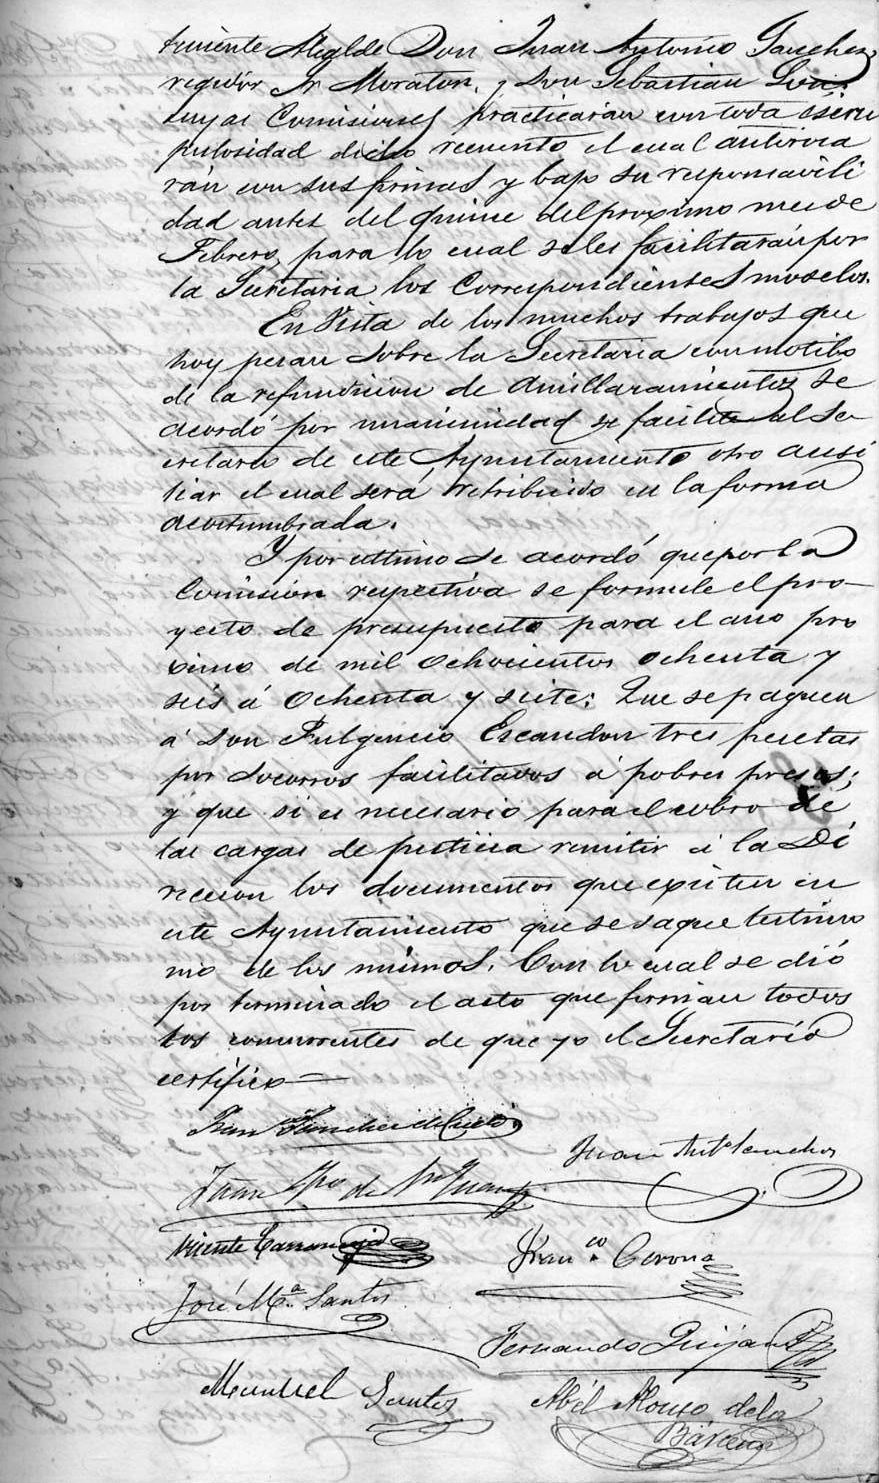 teniente Alcalde Don Juan Antonio Sanchez,
regidor Sr Moraton, y Don Sebastian
cuyas Comisiones practicarán con toda escru
pulosidad dicho recuento el cual autoriza
rán con sus firmas y bajo su responsavili
dad antes del quince del proximo mes de
Febrero, para lo cual seles facilitarán por
la Secretaria los Correspondientes moselos.
En Vista de los muchos trabajos que
hoy pesan sobre la Secretaria con motibo
de la refundicion de Amillaramientos se
acordó por unanimidad se facilite al Se
cretario de este Ayuntamiento otro ausi
liar el cual será retribuido en la forma
acostumbrada.
Y por ultimo se acordó que por la
Comision respectiva se formule el pro-
yecto de presupuesto para el año pro
ximo de mil ochocientos ochenta y
seis á ochenta y siete: Que se paguen
á Don Fulgencio Escandon tres pesetas
por socorros facilitados á pobres presos;
y que si es necesario para el cobro de
las cargas de justicia remitir á la Di
reccion los documentos que existen en
este Ayuntamiento que se saque testimo
nio de los mismos. Con lo cual se dió
por terminado el acto que firman todos
los concurrentes de que yo el Secretario
certifico
Fran Sanchez de Cueto
Juan Ant Sanchez
Juan de
Vicente
Fran.co Corona
José M.a Santos
Fernando Quijano
Manuel Santos
Abél Alonso de la
Bárcena